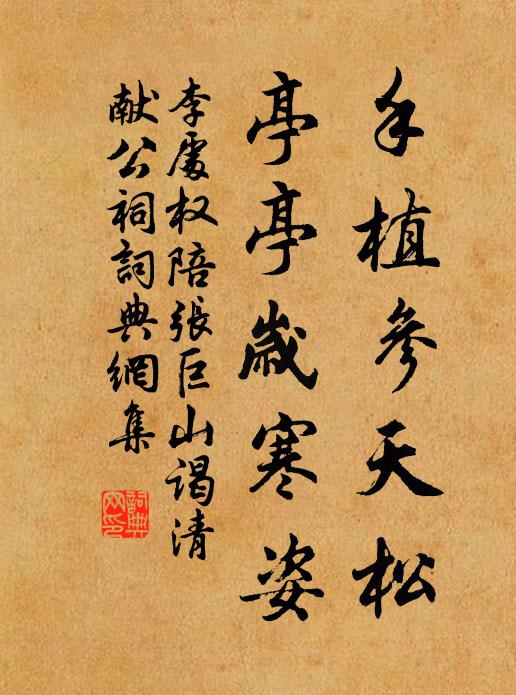 手植參天松
亭亭歲寒姿
李處权陪張巨山谒清
献公祠詞典網集
詞典网印